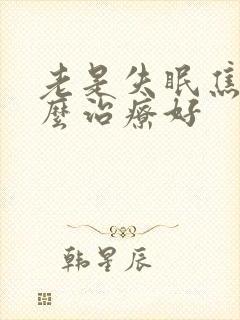 老是失眠焦
麼治療好
韩星辰